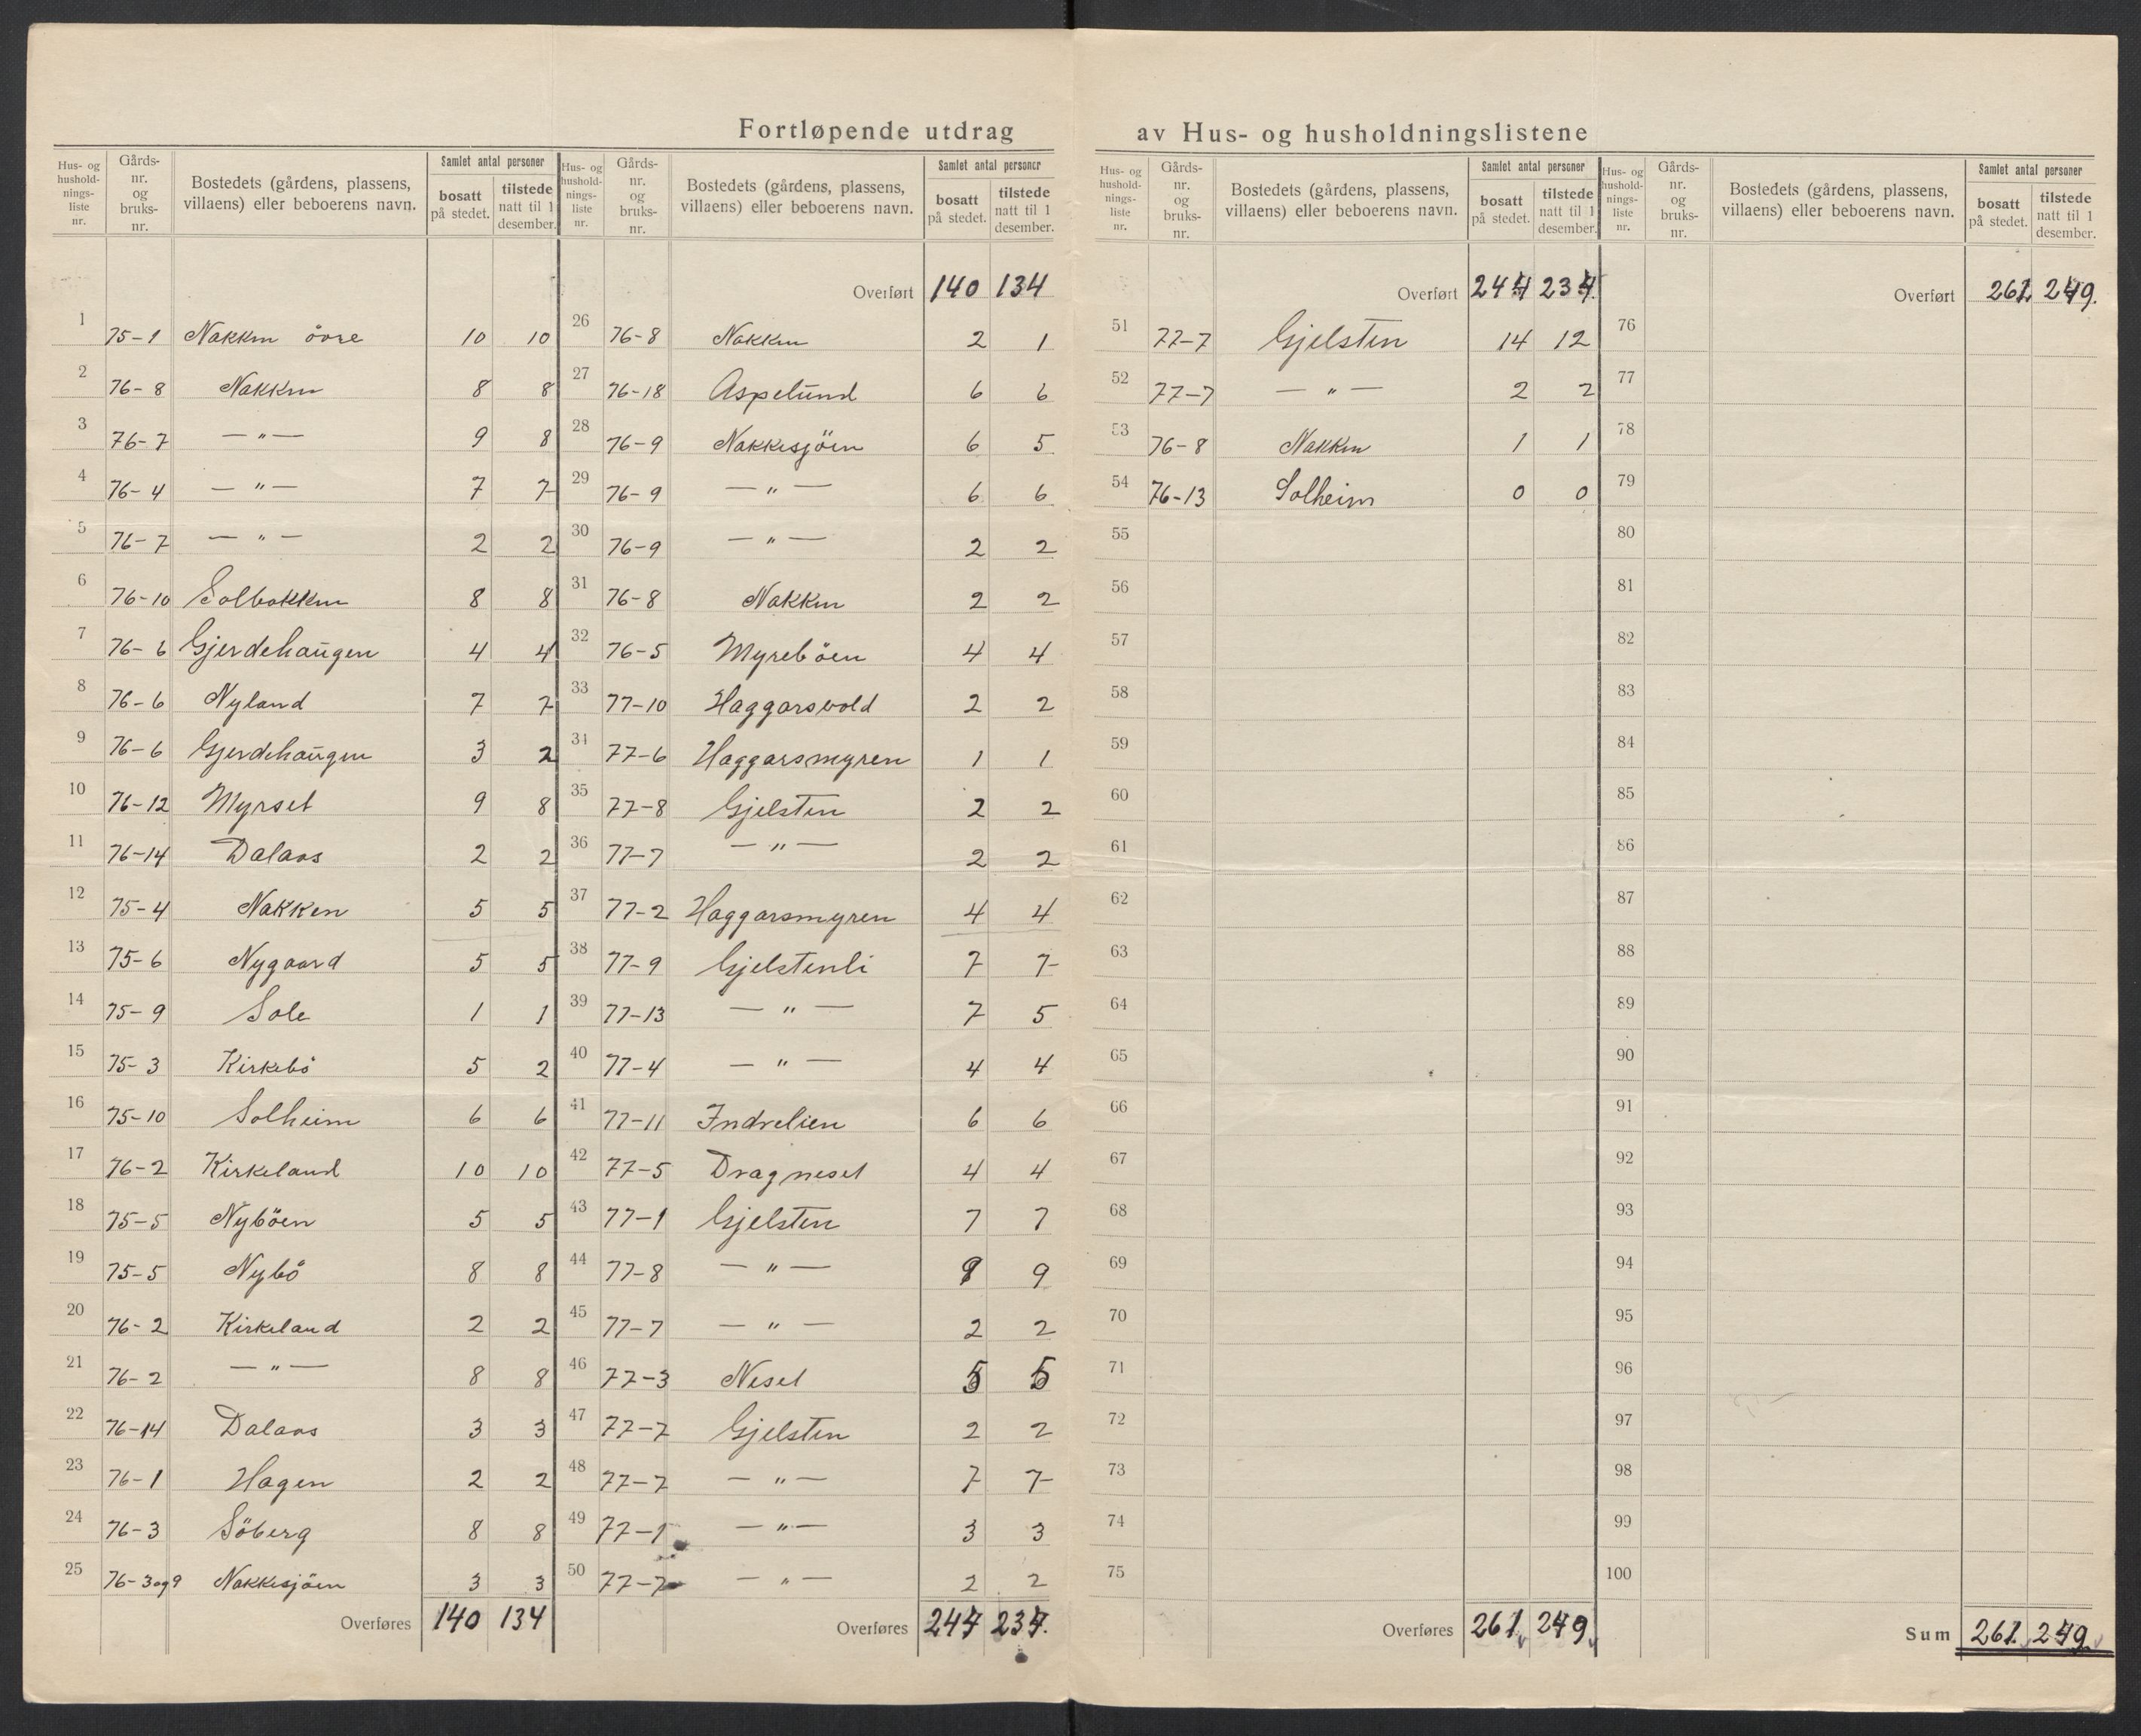 Fortløpende utdrag av Hus- og husholdningslistene
Hus- og hushold-nings-liste nr. | Gårds-nr. og bruks-nr. | Bostedets (gårdens, plassens, villaens) eller beboerens navn. | Samlet antal personer | bosatt på stedet. | tilstede natt til 1 desember.
1 75-1 Nakken övre 10 10
2 76-8 Nakken 8 8
3 76-7 — " — 9 8
4 76-4 — " — 7 7
5 76-7 — " — 2 2
6 76-10 Solbakken 8 8
7 76-6 Gjerdehaugen 4 4
8 76-6 Nyland 7 7
9 76-6 Gjerdehaugen 3 2
10 76-12 Myrset 9 8
11 76-14 Dalaas 2 2
12 75-4 Nakken 5 5
13 75-6 Nygaard 5 5
14 75-9 Sole 1 1
15 75-3 Kirkebö 5 2
16 75-10 Solheim 6 6
17 76-2 Kirkeland 10 10
18 75-5 Nyböen 5 5
19 75-5 Nybö 8 8
20 76-2 Kirkeland 2 2
21 76-2 — " — 8 8
22 76-14 Dalaas 3 3
23 76-1 Hagen 2 2
24 76-3 Söberg 8 8
25 76-3 og 9 Nakkesjöen 3 3
Overføres 140 134
Hus- og hushold-nings-liste nr. | Gårds-nr. og bruks-nr. | Bostedets (gårdens, plassens, villaens) eller beboerens navn. | Samlet antal personer | bosatt på stedet. | tilstede natt til 1 desember.
Overført 140 134
26 76-8 Nakken 2 1
27 76-18 Aspelund 6 6
28 76-9 Nakkesjöen 6 5
29 76-9 — " — 6 6
30 76-9 — " — 2 2
31 76-8 Nakken 2 2
32 76-5 Myreböen 4 4
33 77-10 Haggarsvold 2 2
34 77-6 Haggarsmyren 1 1
35 77-8 Gjelsten 2 2
36 77-7 — " — 2 2
37 77-2 Haggarsmyren 4 4
38 77-9 Gjelstenli 7 7
39 77-13 — " — 7 5
40 77-4 — " — 4 4
41 77-11 Indrelien 6 6
42 77-5 Dragneset 4 4
43 77-1 Gjelsten 7 7
44 77-8 — " — 9 9
45 77-7 — " — 2 2
46 77-3 Neset 5 5
47 77-7 Gjelsten 2 2
48 77-7 — " — 7 7
49 77-1 — " — 3 3
50 77-7 — " — 2 2
Overføres 244 234
Hus- og hushold-nings-liste nr. | Gårds-nr. og bruks-nr. | Bostedets (gårdens, plassens, villaens) eller beboerens navn. | Samlet antal personer | bosatt på stedet. | tilstede natt til 1 desember.
Overført 244 234
51 77-7 Gjelsten 14 12
52 77-7 — " — 2 2
53 76-8 Nakken 1 1
54 76-13 Solheim 0 0
55
56
57
58
59
60
61
62
63
64
65
66
67
68
69
70
71
72
73
74
75
Overføres 261 249
Hus- og hushold-nings-liste nr. | Gårds-nr. og bruks-nr. | Bostedets (gårdens, plassens, villaens) eller beboerens navn. | Samlet antal personer | bosatt på stedet. | tilstede natt til 1 desember.
Overført 261 249.
76
77
78
79
80
81
82
83
84
85
86
87
88
89
90
91
92
93
94
95
96
97
98
99
100
Sum 261 249